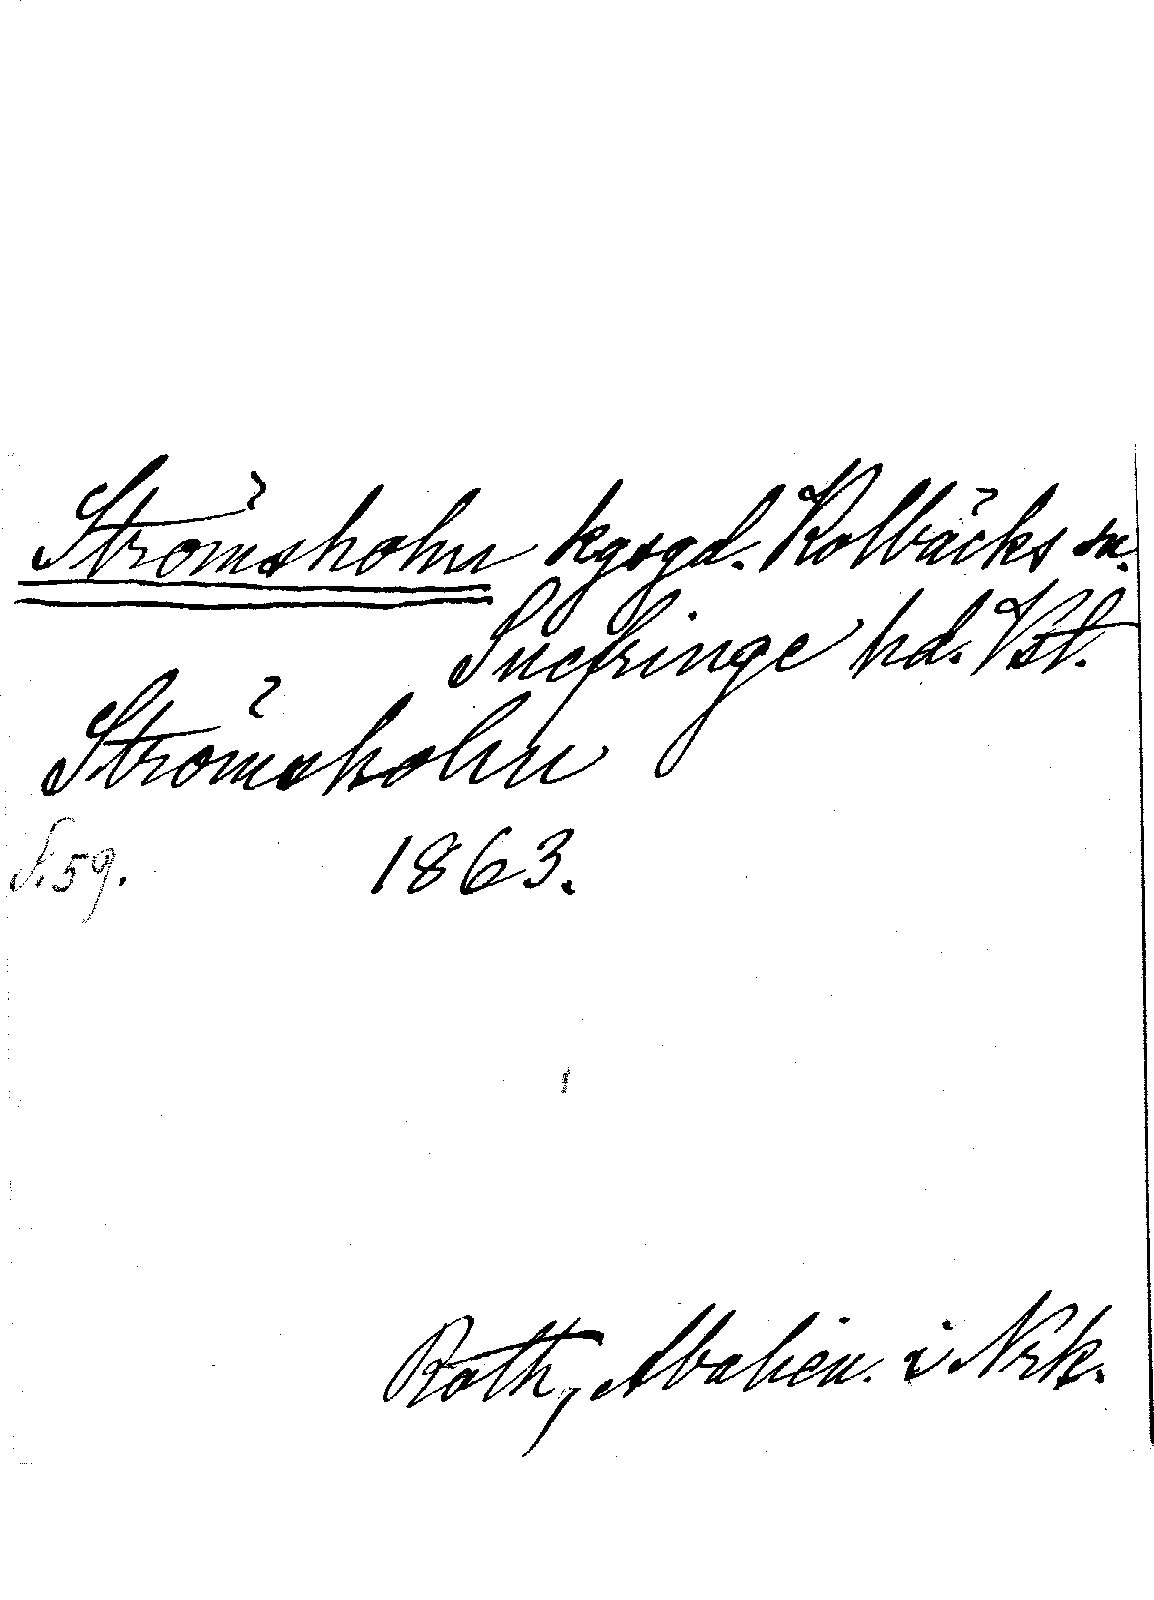 Strömsholm kgsgd. Kolbäcks sn.
Snefringe hd. Vstl.
Strömsholm
S. 59. 1863.
Roth, i Nrk.